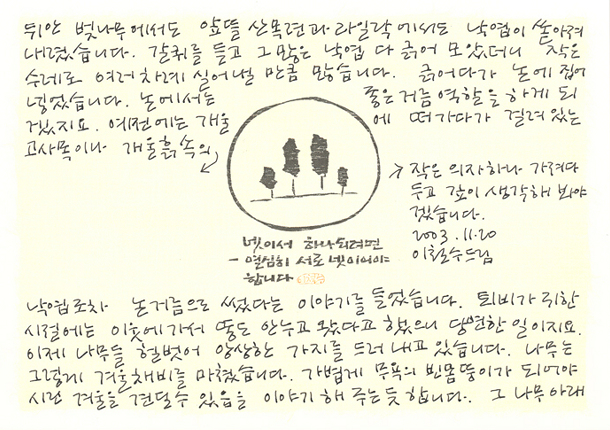 뒤안 벚나무에서도 앞뜰 산목련과 라일락에서도 낙엽이 쏟아져
내렸습니다. 갈퀴를 들고 그 많은 낙엽 다 긁어 모았더니 작은
수레로 여러차례 실어낼 만큼 많습니다. 긁어다가 논에 집어
넣었습니다. 논에서는 좋은 거름 역할을 하게 되
겠지요. 예전에는 개울에 떠가다가 걸려 있는
고사목이나 개울흙 속의
낙엽조차 논거름으로 썼다는 이야기를 들었습니다. 퇴비가 귀한
시절에는 이웃에 가서 똥도 안누고 왔다고 했으니 당연한 일이지요.
이제 나무들 헐벗어 앙상한 가지를 드러내고 있습니다. 나무는
그렇게 겨울채비를 마쳤습니다. 가볍게 무욕의 빈몸뚱이가 되어야
시린 겨울을 견딜수 있음을 이야기 해 주는듯 합니다. 그 나무 아래
작은 의자 하나 가져다
두고 깊이 생각해 봐야
겠습니다.
2003.11.20
이철수드림
넷이서 하나되려면
- 열심히 서로 넷이어야
합니다